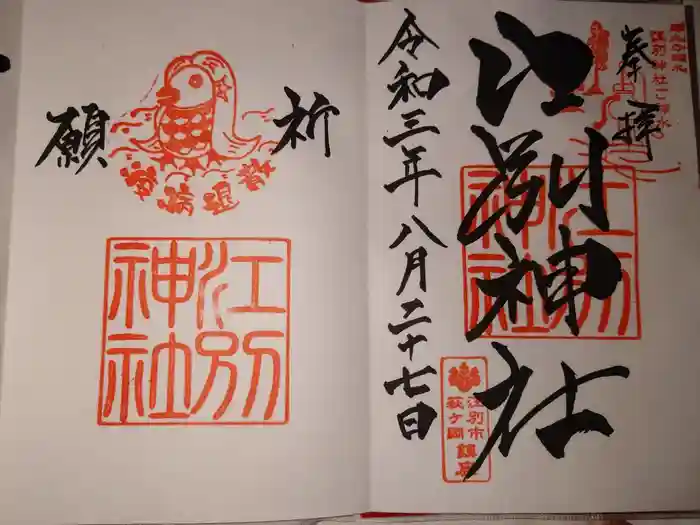 奉拝
江別神社
令和三年八月二十七日
江別神社
江別市
萩ケ岡
鎮座
江別神社ご神水
祈願
疫病退散
江別
神社